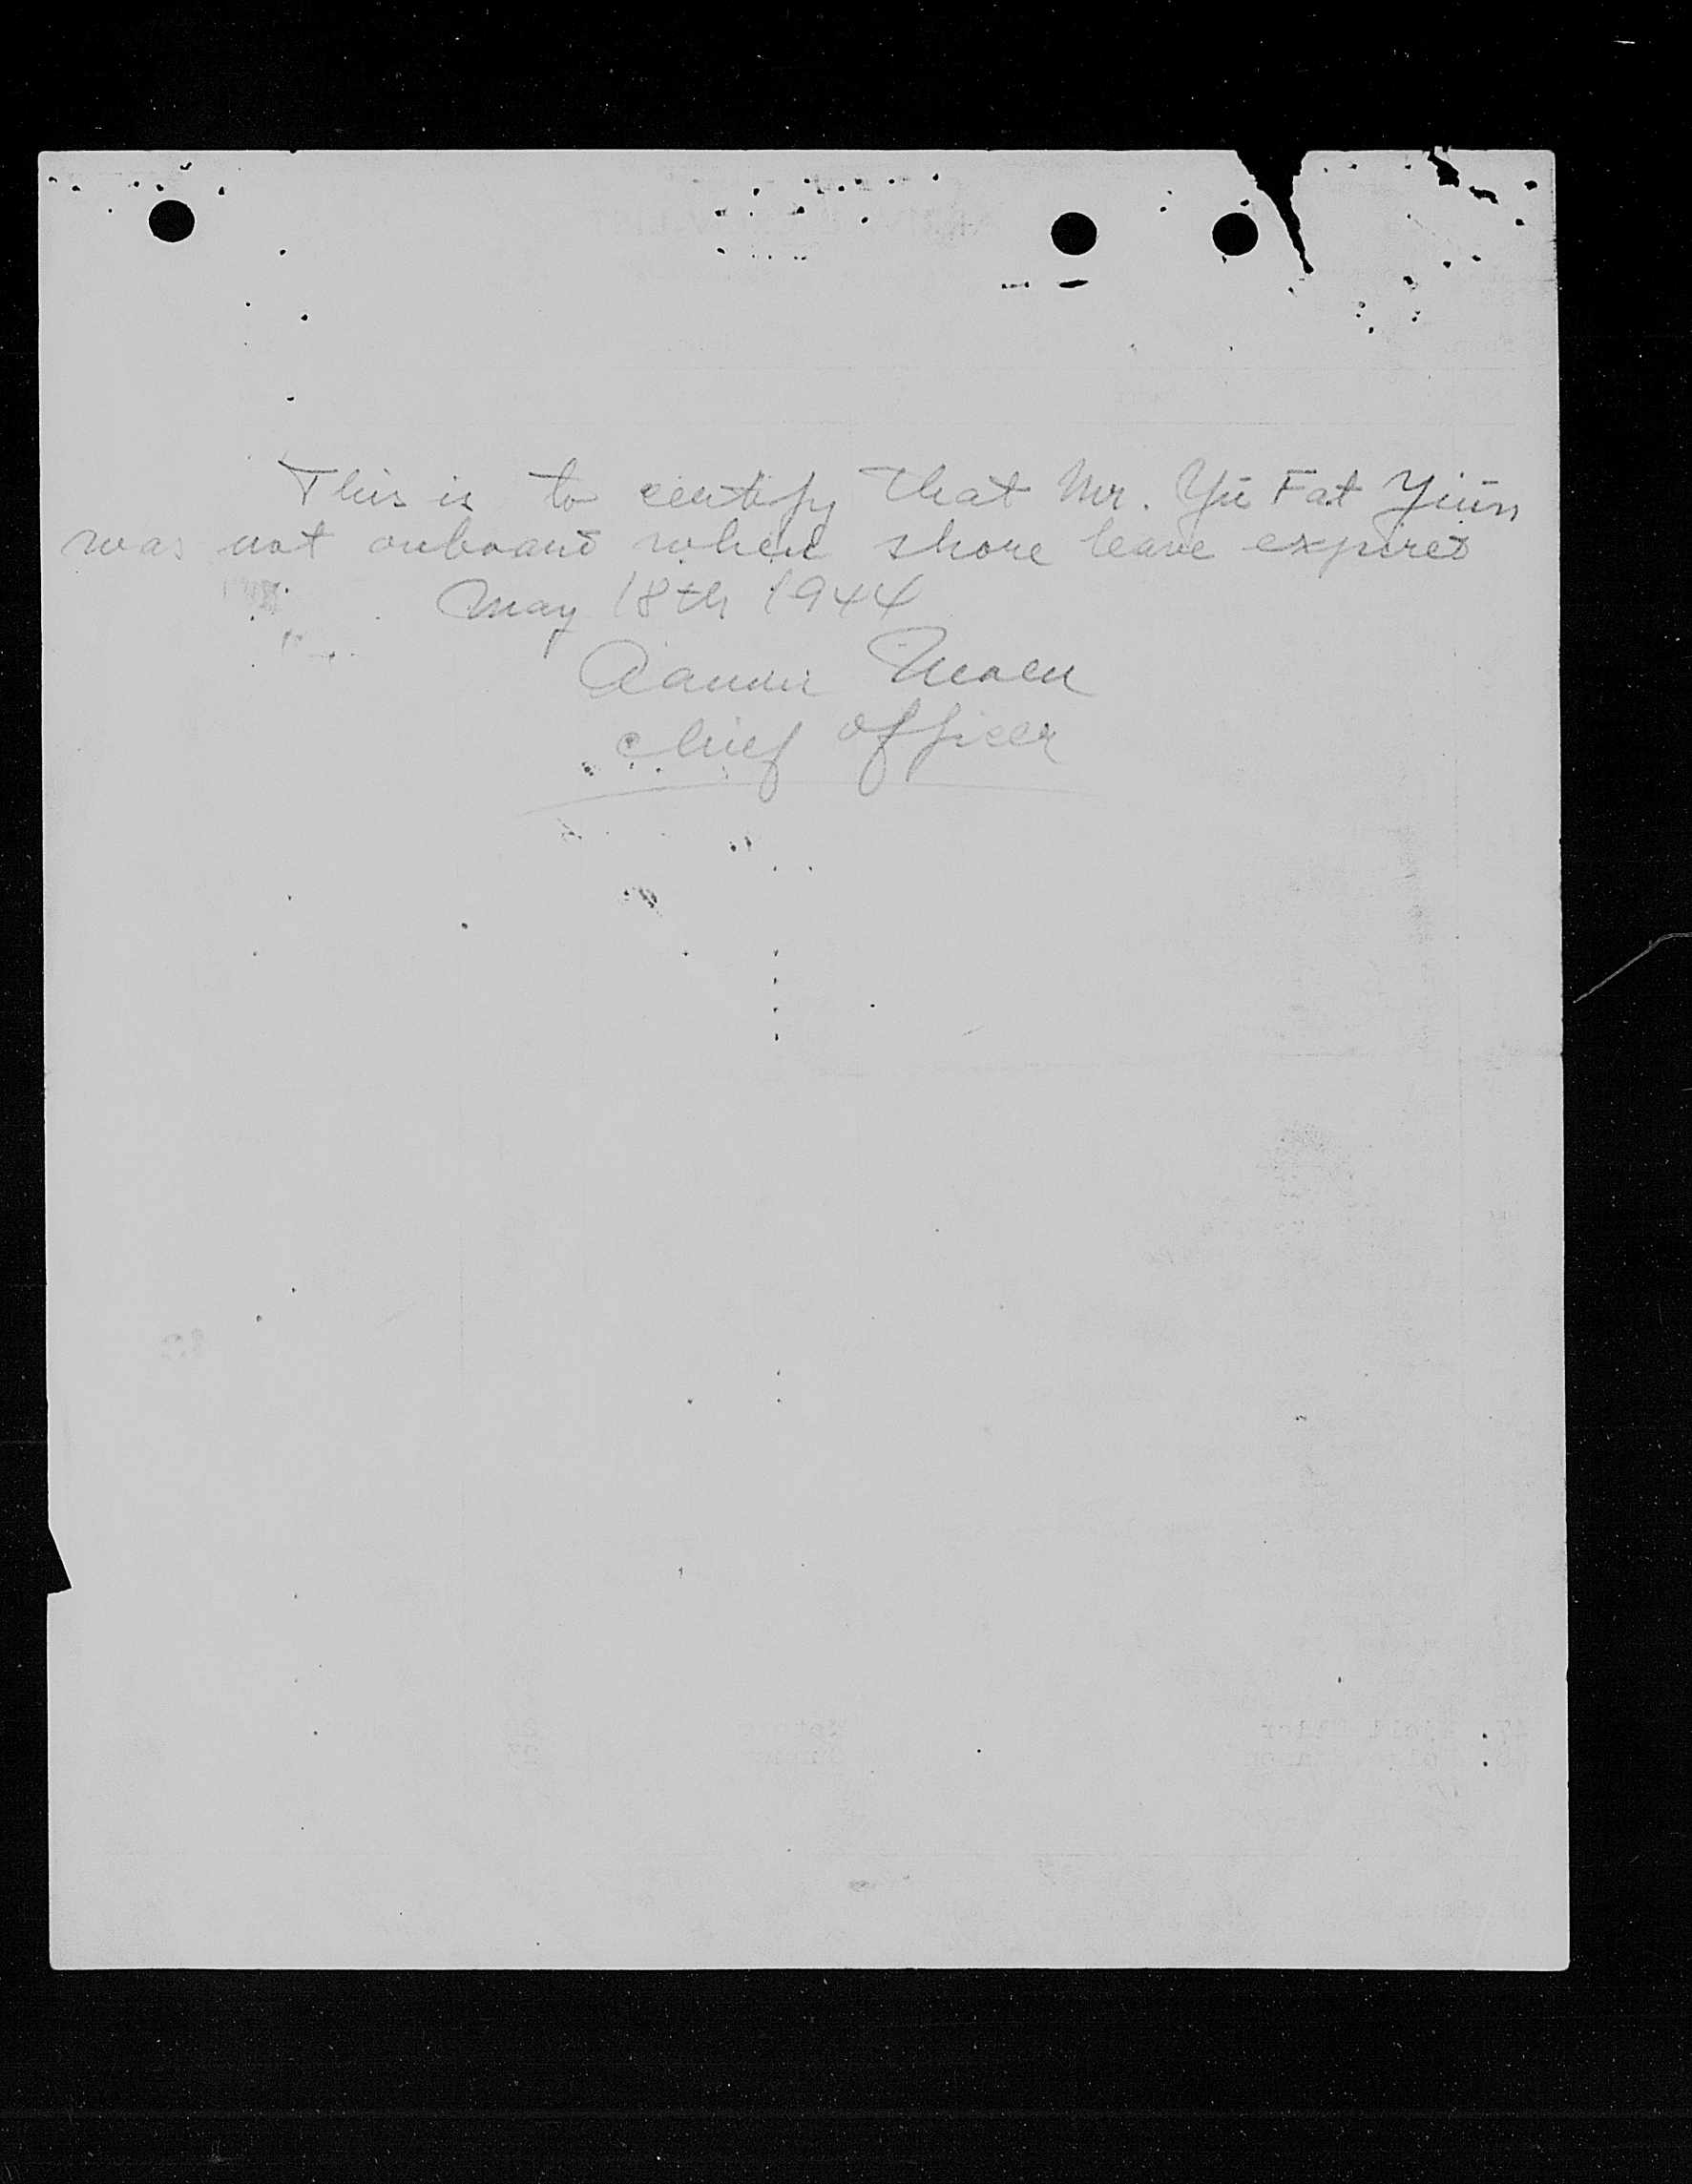 This is to certify that Mr. Yü Fat Yiün
was not onboard when shore leave expired
May 18th 1944
chief officer